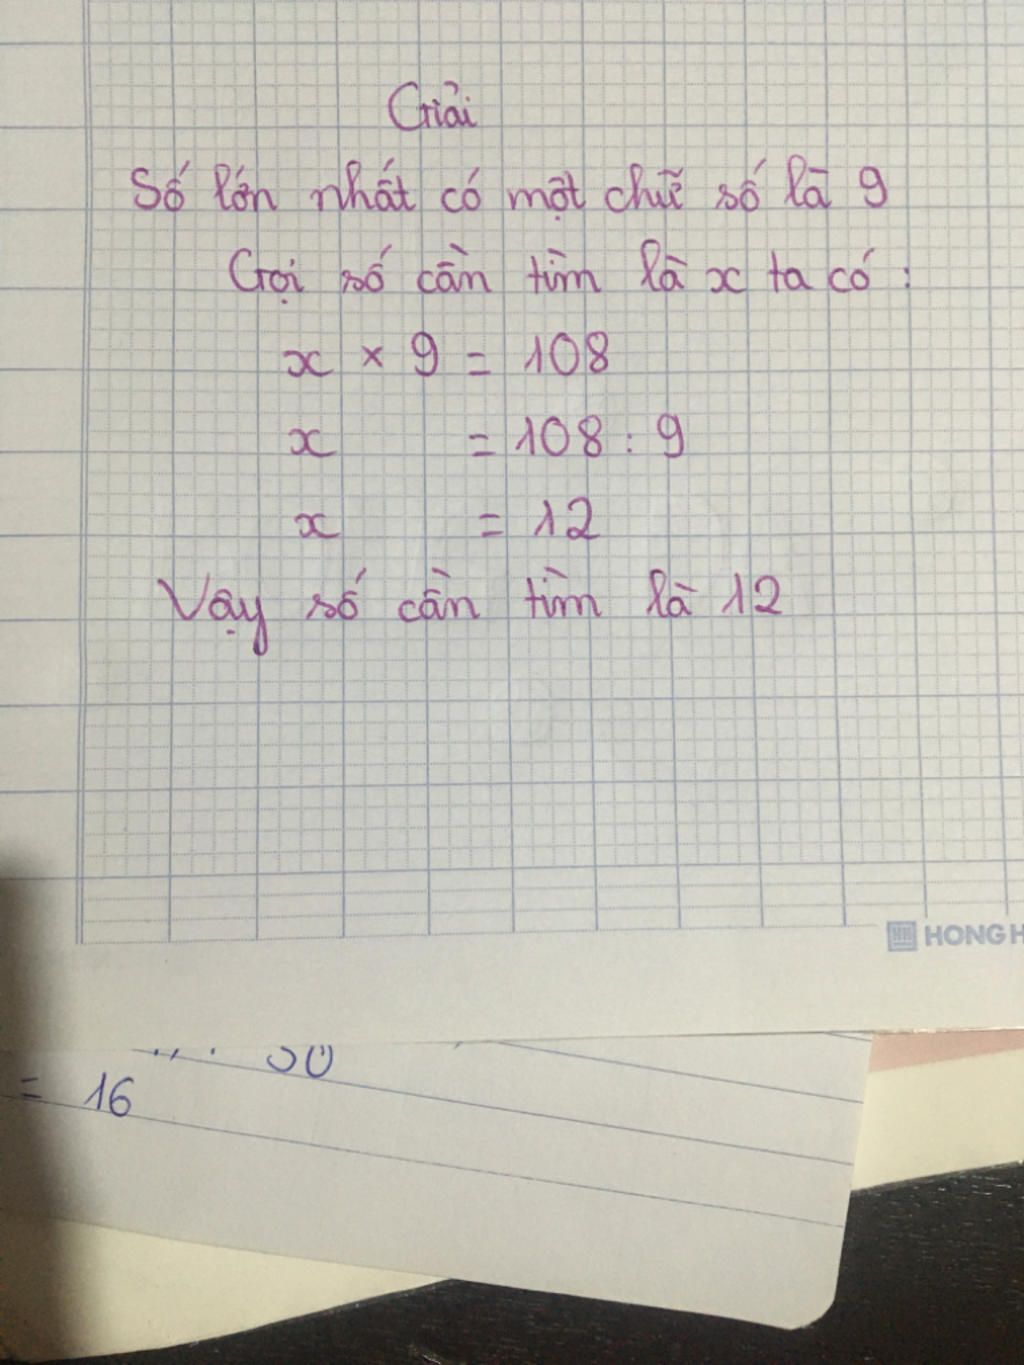 Giải
Số lớn nhất có một chữ số là 9
Gọi số cần tìm là x ta có :
x × 9 = 108
x = 108 : 9
x = 12
Vậy số cần tìm là 12
HONG H
= 16